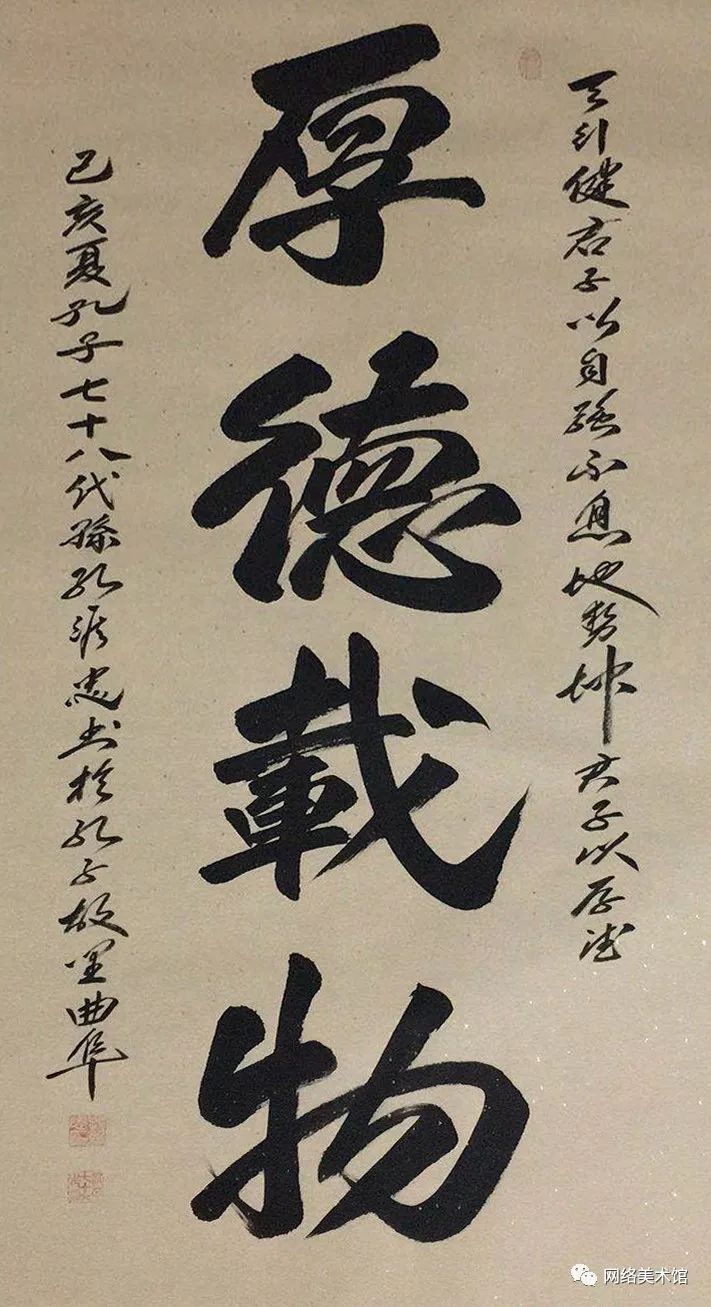 天行健君子以自強不息地勢坤君子以厚德
厚德載物
己亥夏孔子七十八代孫孔維忠書於孔子故里曲阜
网络美术馆